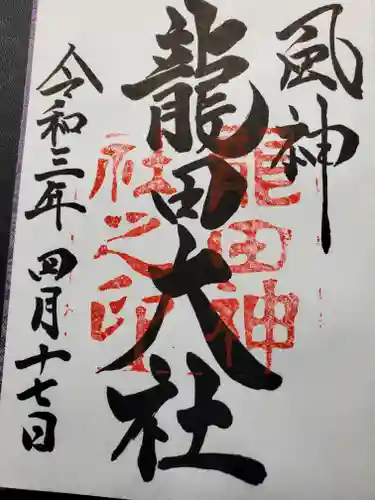 風神
龍田大社
龍田神
社之印
令和三年四月十七日